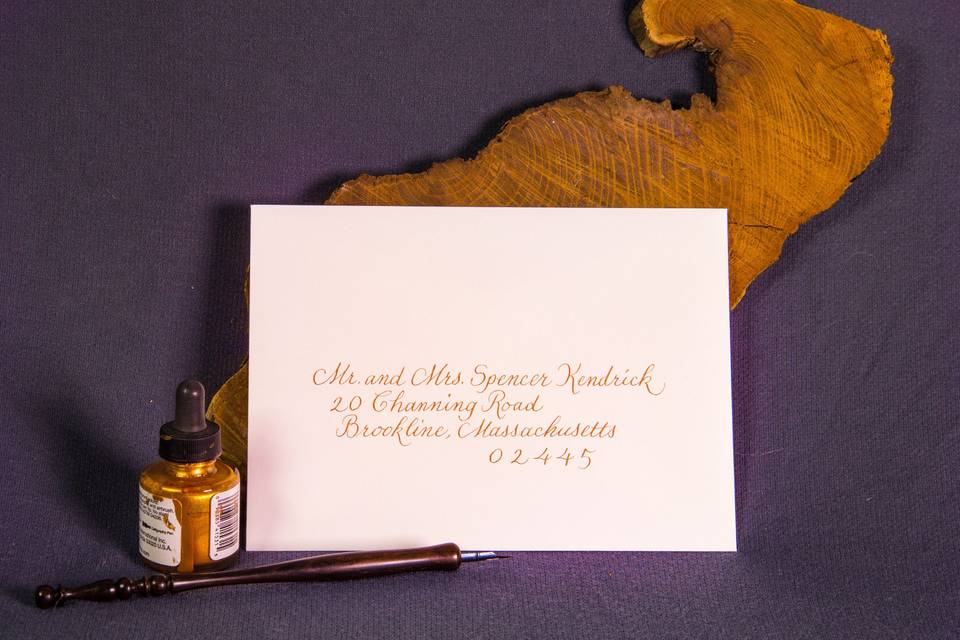 Mr. and Mrs. Spencer Kendrick
20 Channing Road
Brookline, Massachusetts
02445
airbrush.
U.S.A.